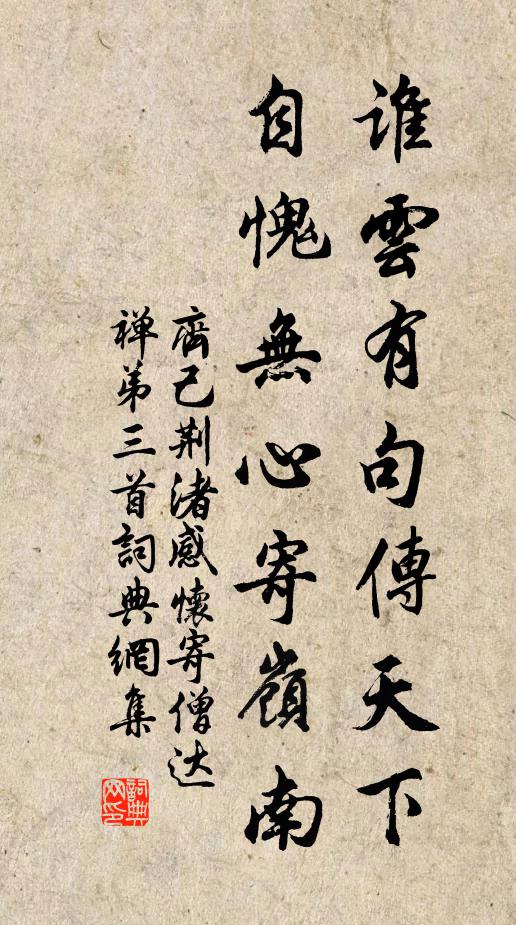 誰雲有句傳天下
自愧無心寄嶺南
齊己荆渚感懷寄僧达
禅弟三首詞典網集
詞典
网印